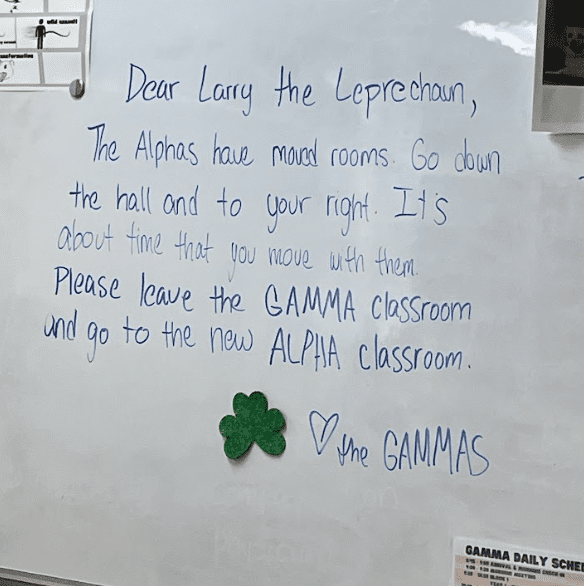 Dear Larry the Leprechaun,
The Alphas have moved rooms. Go down
the hall and to your right. It's
about time that you move with them.
Please leave the GAMMA classroom
and go to the new ALPHA classroom.
♡ the GAMMAS
GAMMA DAILY SCHE